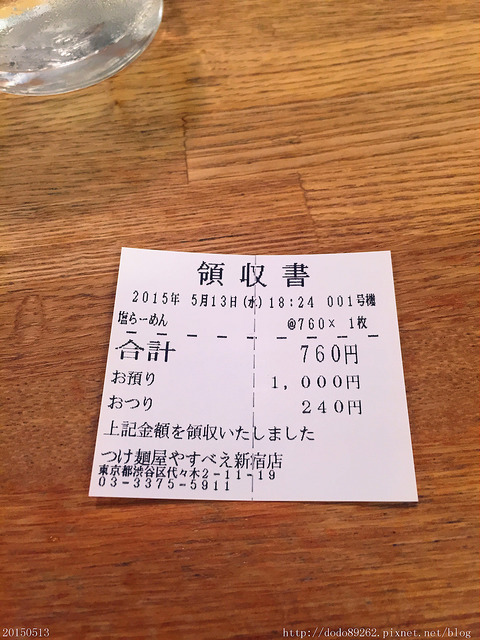 領収書
2015年 5月13日(水)18:24 001号機
塩らーめん @760× 1枚
合計 760円
お預り 1,000円
おつり 240円
上記金額を領収いたしました
つけ麺屋やすべえ新宿店
東京都渋谷区代々木2-11-19
03-3375-5911
20150513 http://dodo89262.pixnet.net/blog